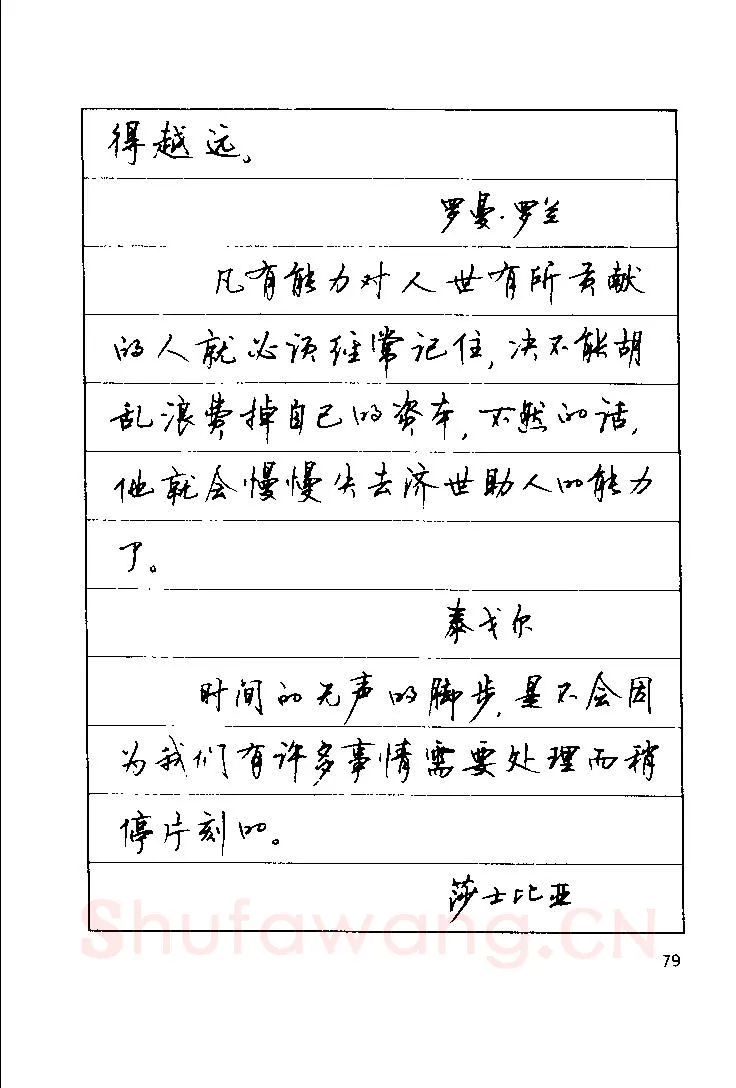 得越远。
罗曼·罗兰
凡有能力对人世有所贡献
的人就必须经常记住,决不能胡
乱浪费掉自己的资本,不然的话,
他就会慢慢失去济世助人的能力
了。
泰戈尔
时间的无声的脚步,是不会因
为我们有许多事情需要处理而稍
停片刻的。
莎士比亚
Shufawang.CN
79